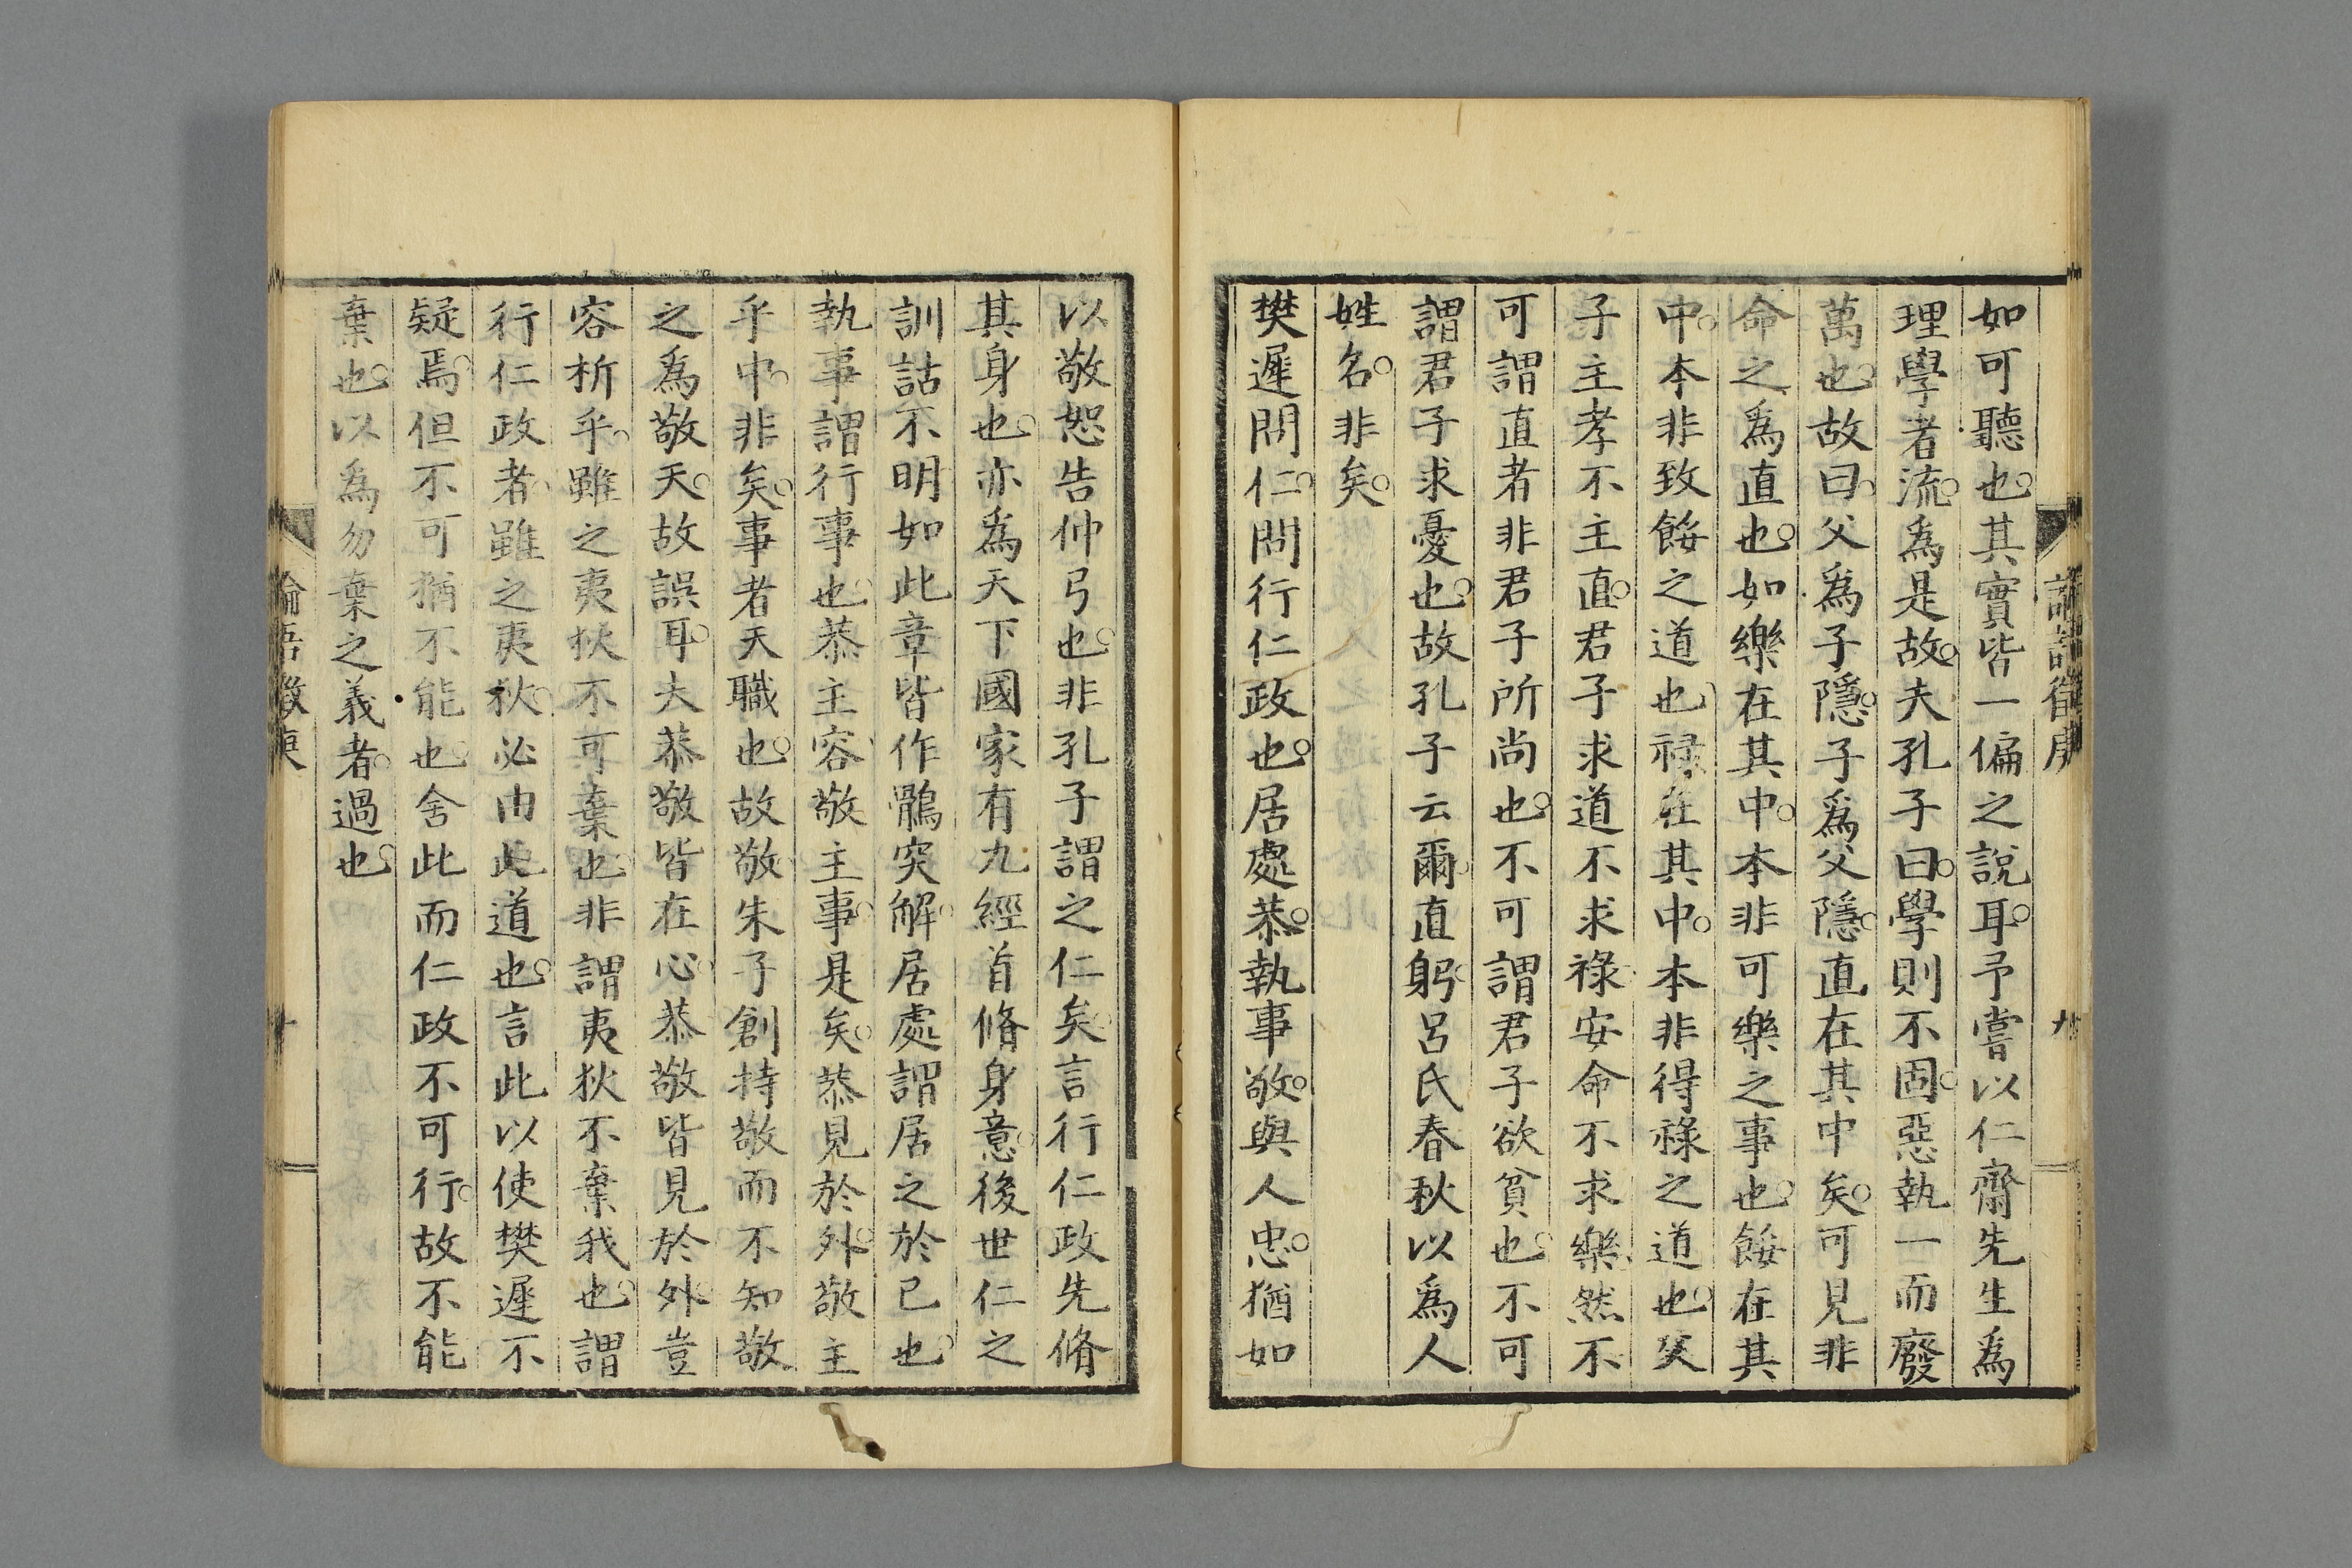 如可聽也其實皆一偏之說耳予嘗以仁齋先生爲
理學者流爲是故夫孔子曰學則不固惡執一而廢
萬也故曰父爲子隱子爲父隱直在其中矣可見非
命之爲直也如樂在其中本非可樂之事也餒在其
中本非致餒之道也祿在其中本非得祿之道也父
子主孝不主直君子求道不求祿安命不求樂然不
可謂直者非君子所尚也不可謂君子欲貧也不可
謂君子求憂也故孔子云爾直躬呂氏春秋以爲人
姓名非矣
樊遲問仁問行仁政也居處恭執事敬與人忠猶如
以敬恕告仲弓也非孔子謂之仁矣言行仁政先脩
其身也亦爲天下國家有九經首脩身意後世仁之
訓詁不明如此章皆作鶻突解居處謂居之於己也
執事謂行事也恭主容敬主事是矣恭見於外敬主
乎中非矣事者天職也故敬朱子創持敬而不知敬
之爲敬天故誤耳夫恭敬皆在心恭敬皆見於外豈
容析乎雖之夷狄不可棄也非謂夷狄不棄我也謂
行仁政者雖之夷狄必由此道也言此以使樊遲不
疑焉但不可猶不能也舍此而仁政不可行故不能
棄也以爲勿棄之義者過也
論語徵庚
十